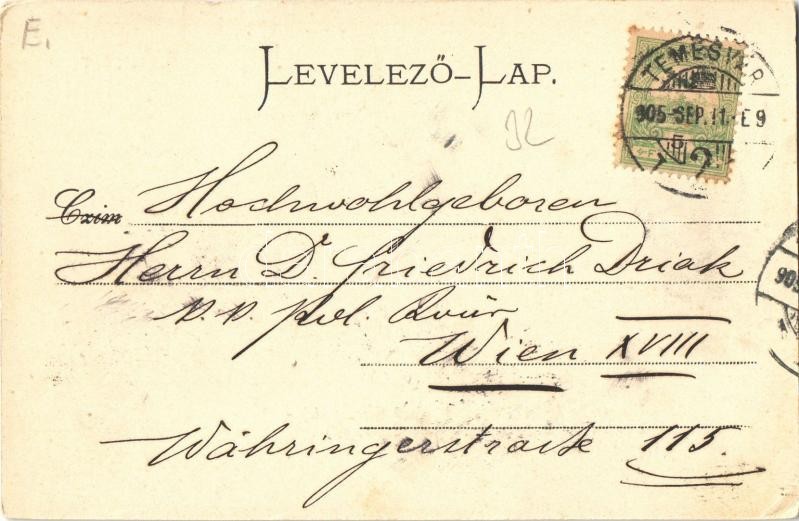 E.
LEVELEZŐ-LAP.
TEMESVÁR
905 SEP. 11. E 9
92
Czim
Hochwohlgeboren
Herrn D. Friedrich Driak
Wien XVIII
Währingerstraße 115.
905